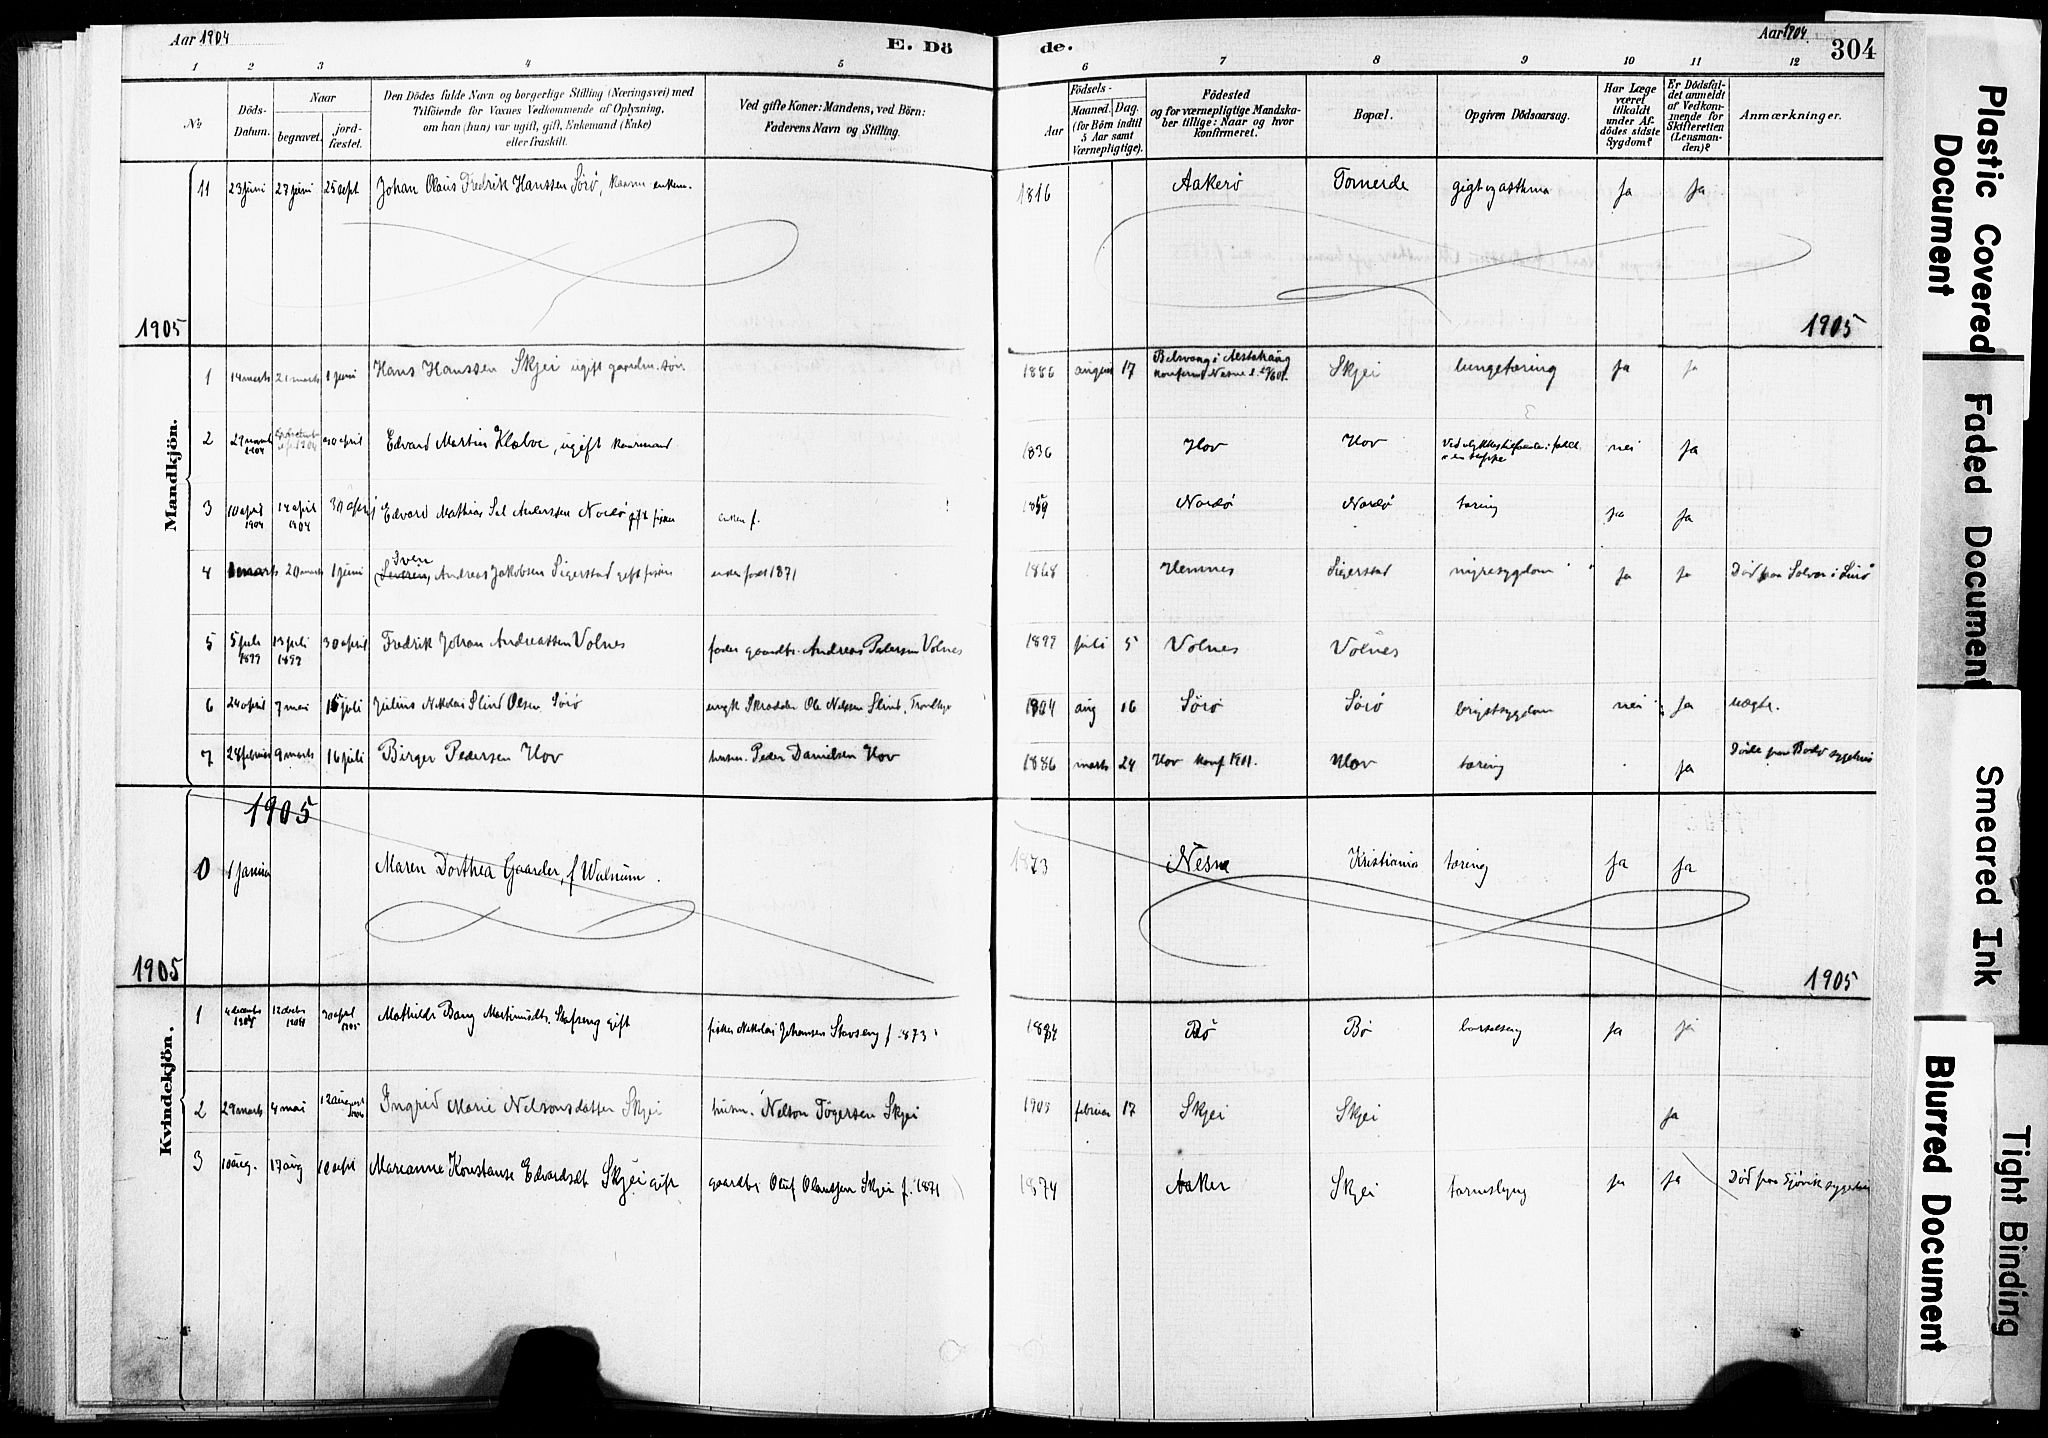 Aar 1904
E. Dö
de.
Aar 1904.
304
1 2 3 4 5 6 7 8 9 10 11 12
№
Döds-
Datum.
Naar
begravet.
jord-
fæstet.
Den Dödes fulde Navn og borgerlige Stilling (Næringsvei) med
Tilföiende för Voxnes Vedkommende af Oplysning,
om han (hun) var ugift, gift, Enkemand (Enke)
eller fraskilt.
Ved gifte Koner: Mandens, ved Börn:
Faderens Navn og Stilling.
Födsels-
Aar
Maaned.
Dag.
(for Börn indtil
5 Aar samt
Værnepligtige).
Födested
og for værnepligtige Mandska-
ber tillige: Naar og hvor
konfirmeret.
Bopæl.
Opgiven Dödsaarsag.
Har Læge
været
tilkaldt
under Af-
dödes sidste
Sygdom?
Er Dödsfal-
det anmeldt
af Vedkom-
mende for
Skifteretten
(Lensman-
den)?
Anmærkninger.
11 23 juni 27 juni 25 sept Johan Olaus Fredrik Hanssen Sörö, kaarm. enkem. 1816 Aakerö Torneide gigt og asthma Ja Ja
1905
1905
Mandkjön.
1 14 marts 21 marts 1 juni Hans Hanssen Skjei ugift gaardm. sön. 1886 august 17 i Alstahaug
konferm. Nesne Skjei lungetæring Ja Ja
2 1904 30 april Edvard Martin Klæboe, ugift kaarmand 1836 Hov Hov nei Ja
3 10 april 1904 14 april 1904 30 april Edvard Mathias Anderssen Nordö gift fisker enken f. 1859 Nordö Nordö tæring Ja Ja
4 marts 20 marts 1 juni Sven
Severin, Andreas Jakobsen Sigerstad gift fisker enken født 1871 1868 Hemnes Sigerstad nyresygdom Ja Ja Död paa Solvær i Lurö
5 5 juli 1899 13 juli 1899 30 april Fredrik Johan Andreassen Volnes fader gaardbr. Andreas Pedersen Volnes 1899 juli 5 Volnes Volnes
6 24 april 7 mai 15 juli Julius Nikolai Slind Olsen Sörö ungk Skrædder Ole Nelsen Slind, 1904 aug 16 Sörö Sörö brystsygdom nei Ja uægte.
7 28 februar 9 marts 16 juli Birger Pedersen Hov husm. Peder Danielsen Hov 1886 marts 24 Hov konf 1901. Hov tæring Ja Döde paa Bodö sygehus
1905
0 1 januar Maren Dorthea Gaarder, f Walnum. 1873 Nesne Kristiania tæring Ja Ja
1905
1905
Kvindekjön.
1 4 decembr 1904 12 decbr 1904 30 april 1905 Mathilde Bang Martinusdtr. gift fisker Nikolai Johansen f 1873 Bö Bö barselseng Ja Ja
2 29 marts 4 mai 12 august Ingrid Marie Nelsonsdatter Skjei husm. Nelson Tögersen Skjei 1905 februar 17 Skjei Skjei Ja
3 10 aug. 17 aug 10 sept Marianne Konstanse Edvardsdt Skjei gift gaardbr Oluf Olaussen Skjei f. 1871 1874 Aaker Skjei tarmslyng Ja Ja Död paa Gjövik sygehus
Plastic Covered
Document
Faded Document
Smeared Ink
Blurred Document
Tight Binding